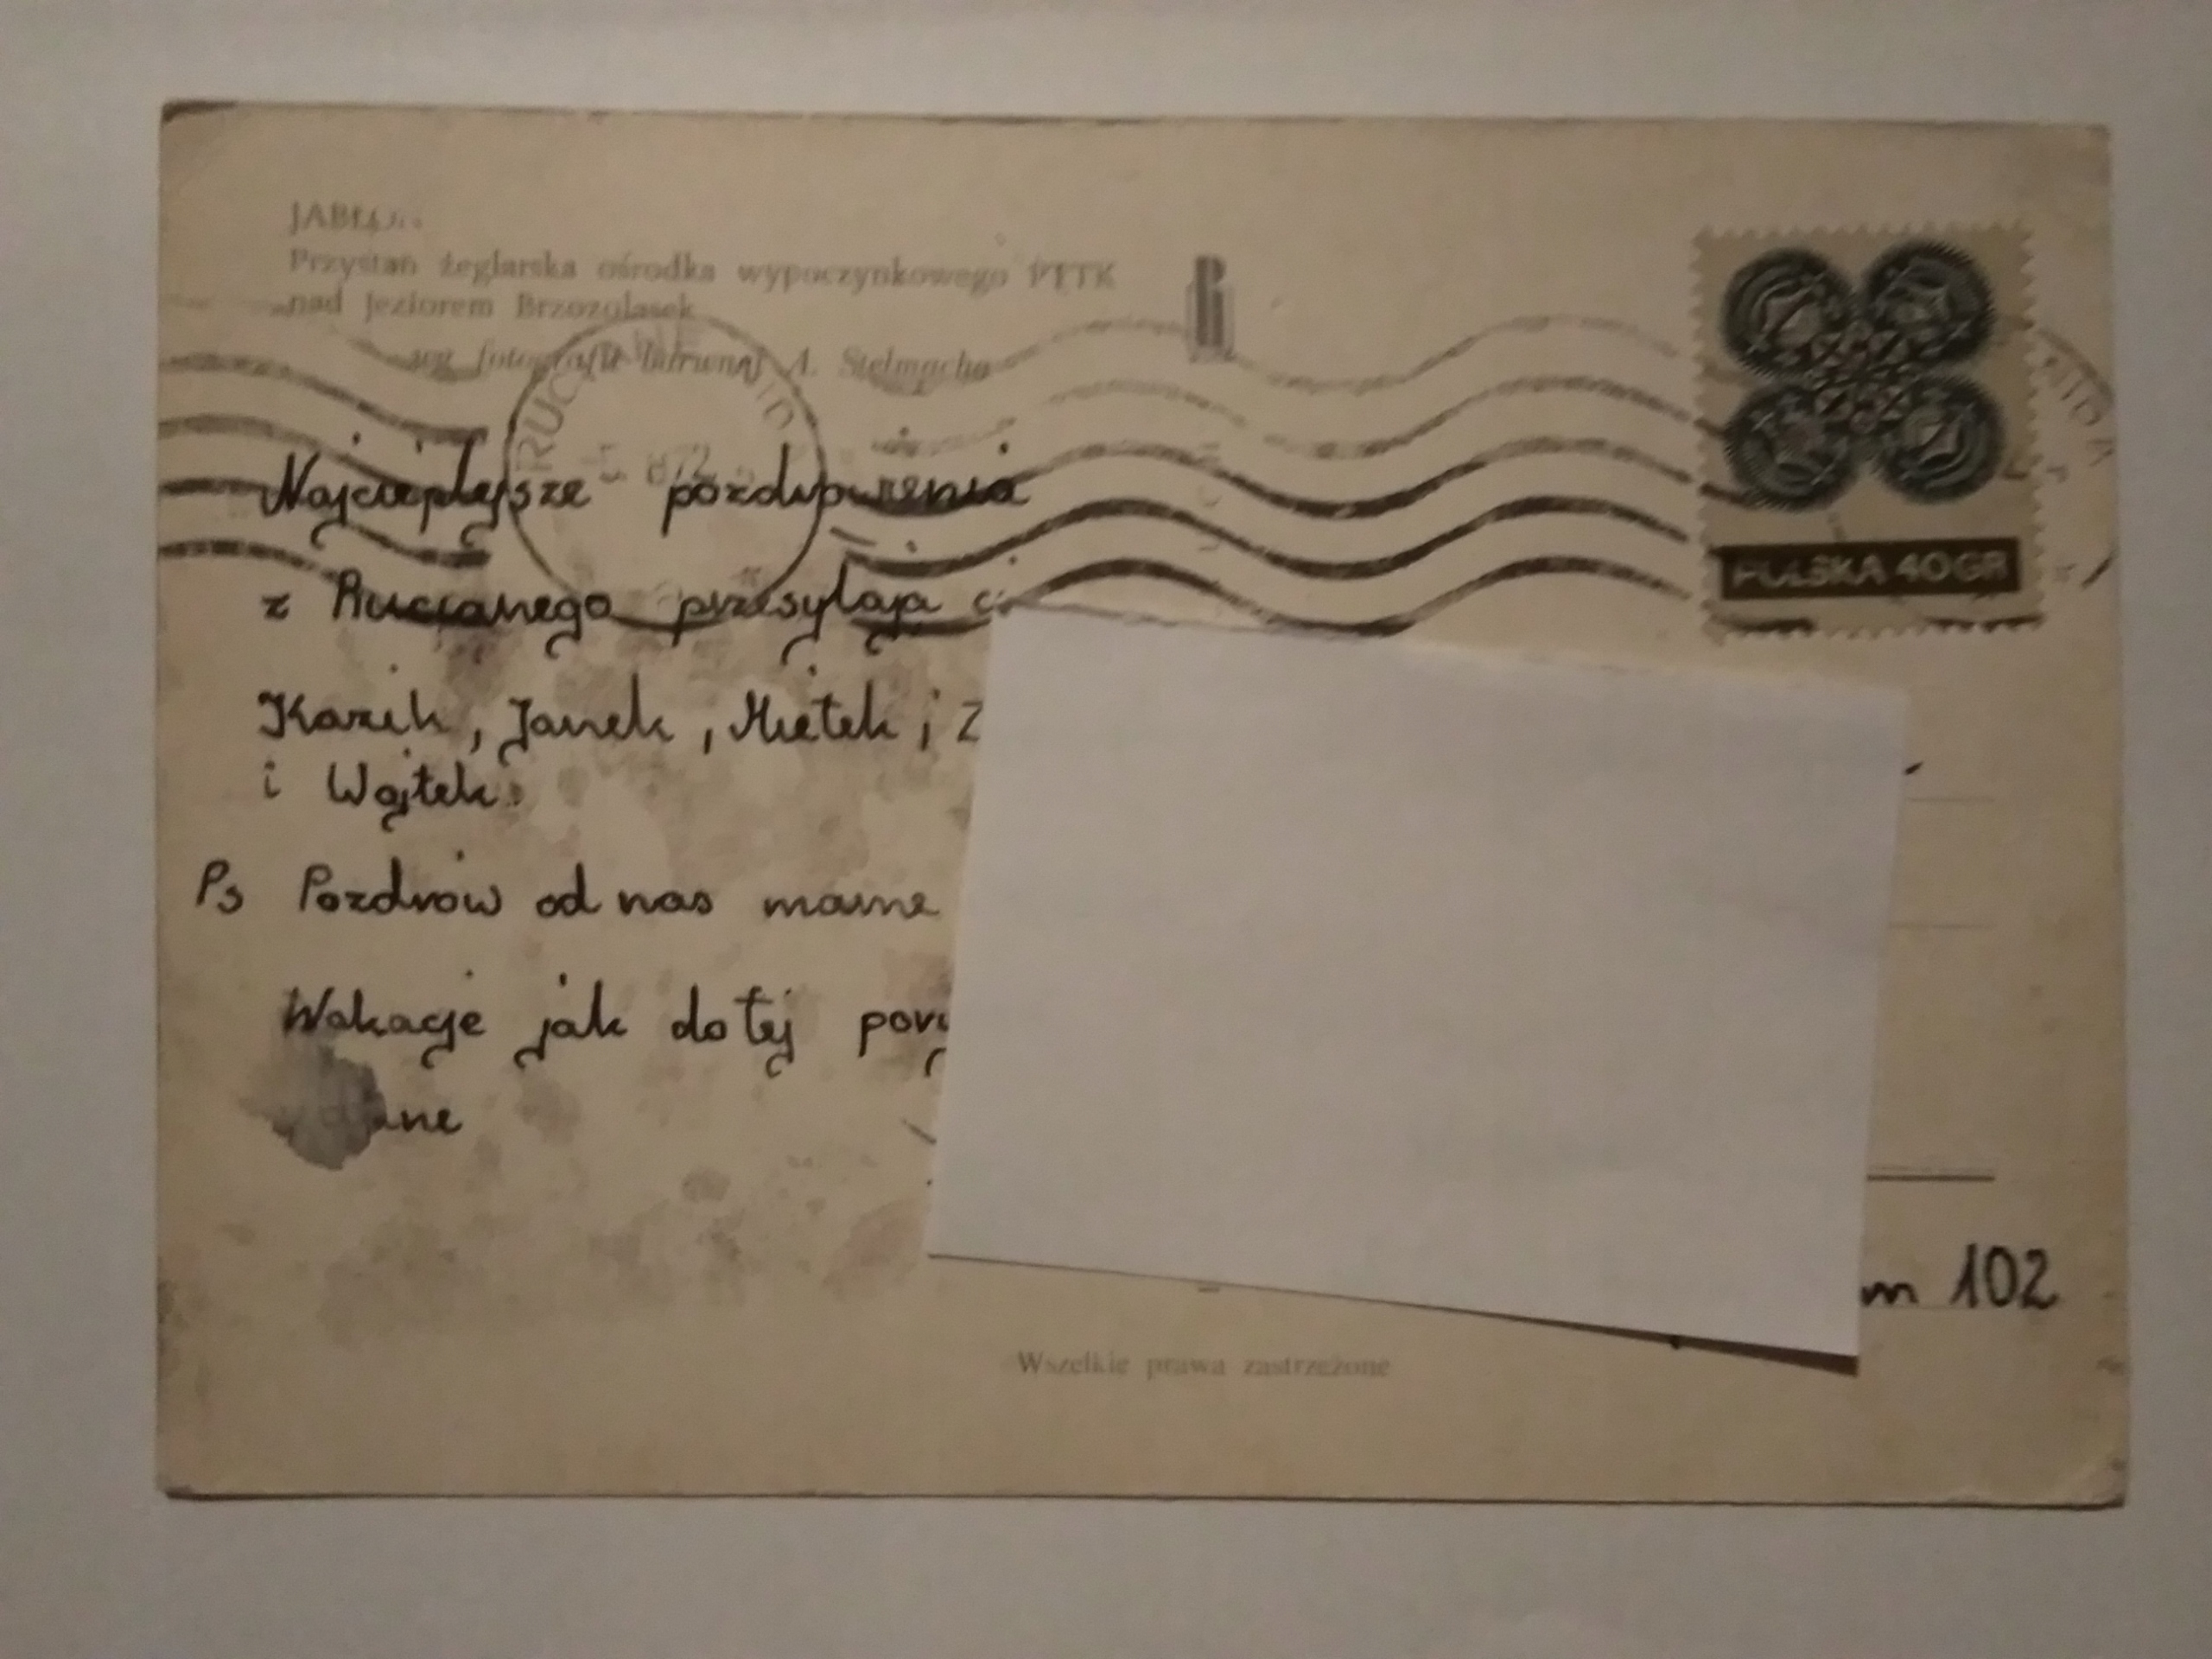 Przystań żeglarska ośrodka wypoczynkowego PTTK
nad Jeziorem Brzozolasek
wg fotografii barwnej A. Stelmacha
POLSKA 40 GR
Najcieplejsze pozdrowienia
z Rucianego przesyłają
Kazik, Janek, Mietek, Z
i Wojtek.
Ps Pozdrów od nas mamę
Wakacje jak do tej
m 102
Wszelkie prawa zastrzeżone